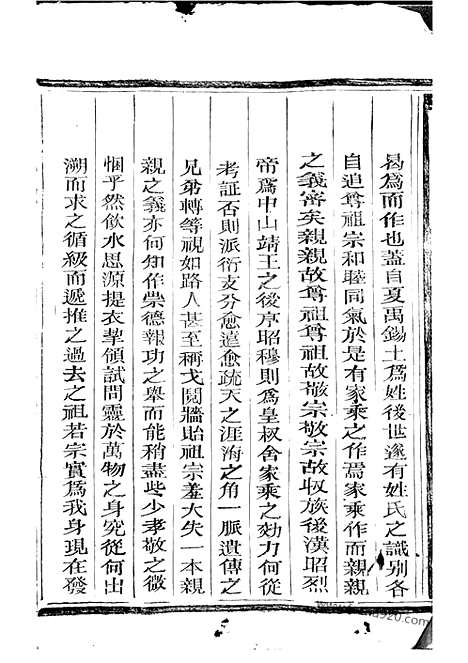 曷為而作也蓋自夏禹錫土為姓後世遂有姓氏之識別各
自追尊祖宗和睦同氣於是有家乘之作焉家乘作而親親
之義審矣親親故尊祖尊祖故敬宗敬宗故收族後漢昭烈
帝為中山靖王之後序昭穆則為皇叔舍家乘之効力何從
考証否則派衍支分愈遠愈疏天之涯海之角一脈遺傳之
兄弟轉等視如路人甚至稱戈鬩牆貽祖宗羞大失一本親
親之義亦何知作崇德報功之舉而能稍盡些少孝敬之微
悃乎然飲水思源提衣挈領試問靈於萬物之身究從何出
溯而求之循級而遞推之過去之祖若宗實為我身現在發